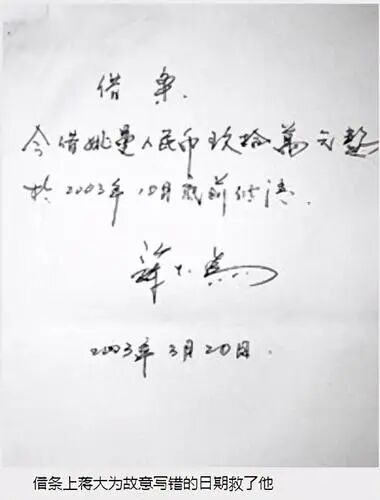 借条
今借姚曼人民币玖拾萬元整
於2003年10月底前付清.
蒋大为
2003年3月20日.
借条上蒋大为故意写错的日期救了他